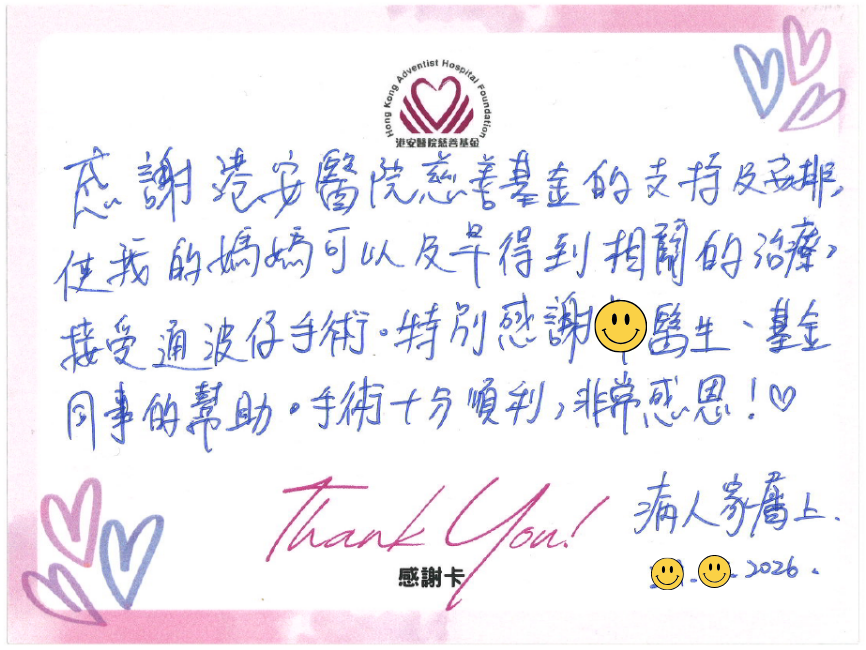 Hong Kong Adventist Hospital Foundation
港安醫院慈善基金
感謝港安醫院慈善基金的支持及安排,
使我的媽媽可以及早得到相關的治療,
接受通波仔手術。特別感謝醫生、基金
同事的幫助。手術十分順利,非常感恩!♡
Thank You!
感謝卡
病人家屬上.
2026.